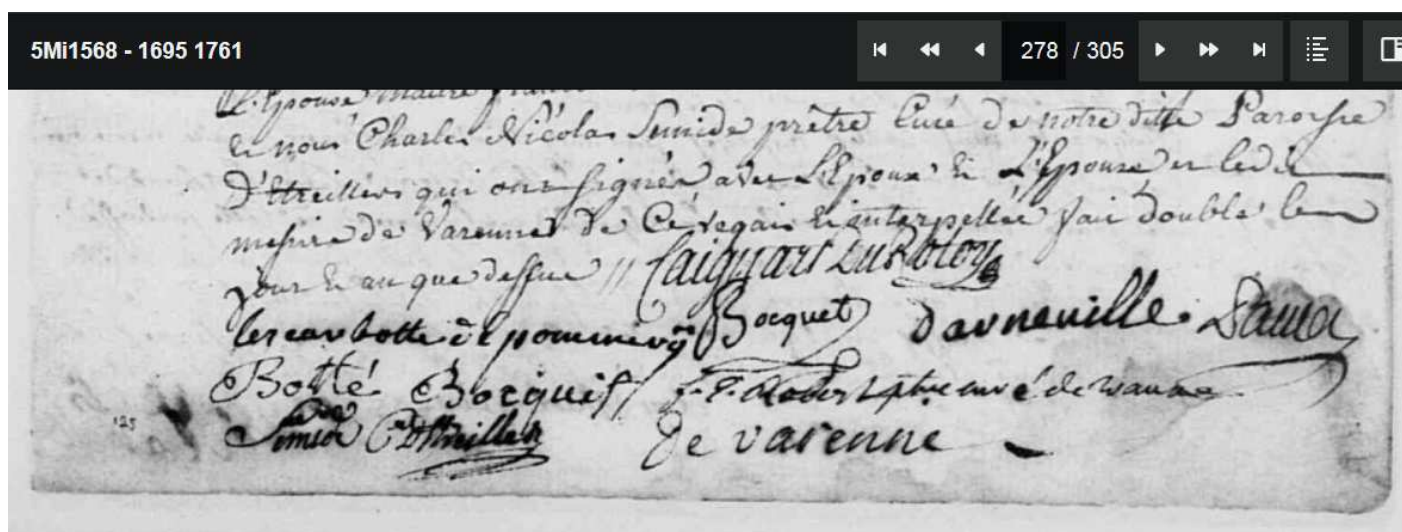 5Mi1568 - 1695 1761
278 / 305
L'Epouse maitre
et nous Charles Nicolas Simide prêtre Curé de notre ditte Paroisse
D'Etreillers qui ont signés avec L'Epoux et L'Epouse et ledit
messire de Varennes de Ce regais et interpellés fait double les
jour et an que dessus //
Bocquet darneville. Dama
Botté Bocquet robert ptre curé de
Simide C. D'Etreillers de varenne
125